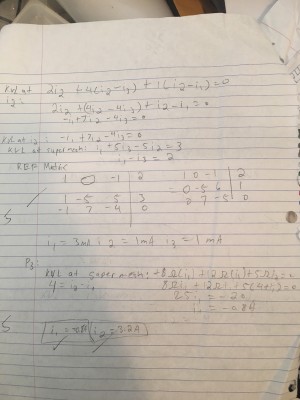 KVL at 2i2 + 4(i2-i3) + 1(i2-i1)=0
i2: 2i2 + (4i2-4i3)+i2-i1=0
-i1+7i2-4i3=0
KVL at i2: -i1+7i2-4i3=0
KVL at supermesh: i1+5i3-5i2=3
i1-i3=2
REF Matrix
1 0 -1 2 1 0 -1 2
1 -5 5 3 = 0 -5 6 1
-1 7 -4 0 0 7 -5 0
i1=3mA i2=1mA i3=1mA
P3:
KVL at supermesh: +8Ω(i1)+12Ω(i1)+5Ωi2=0
4=i2-i1 8Ωi1+12Ωi1+5(4+i1)=0
25i1=-20
i1=-0.8A
i2=3.2A